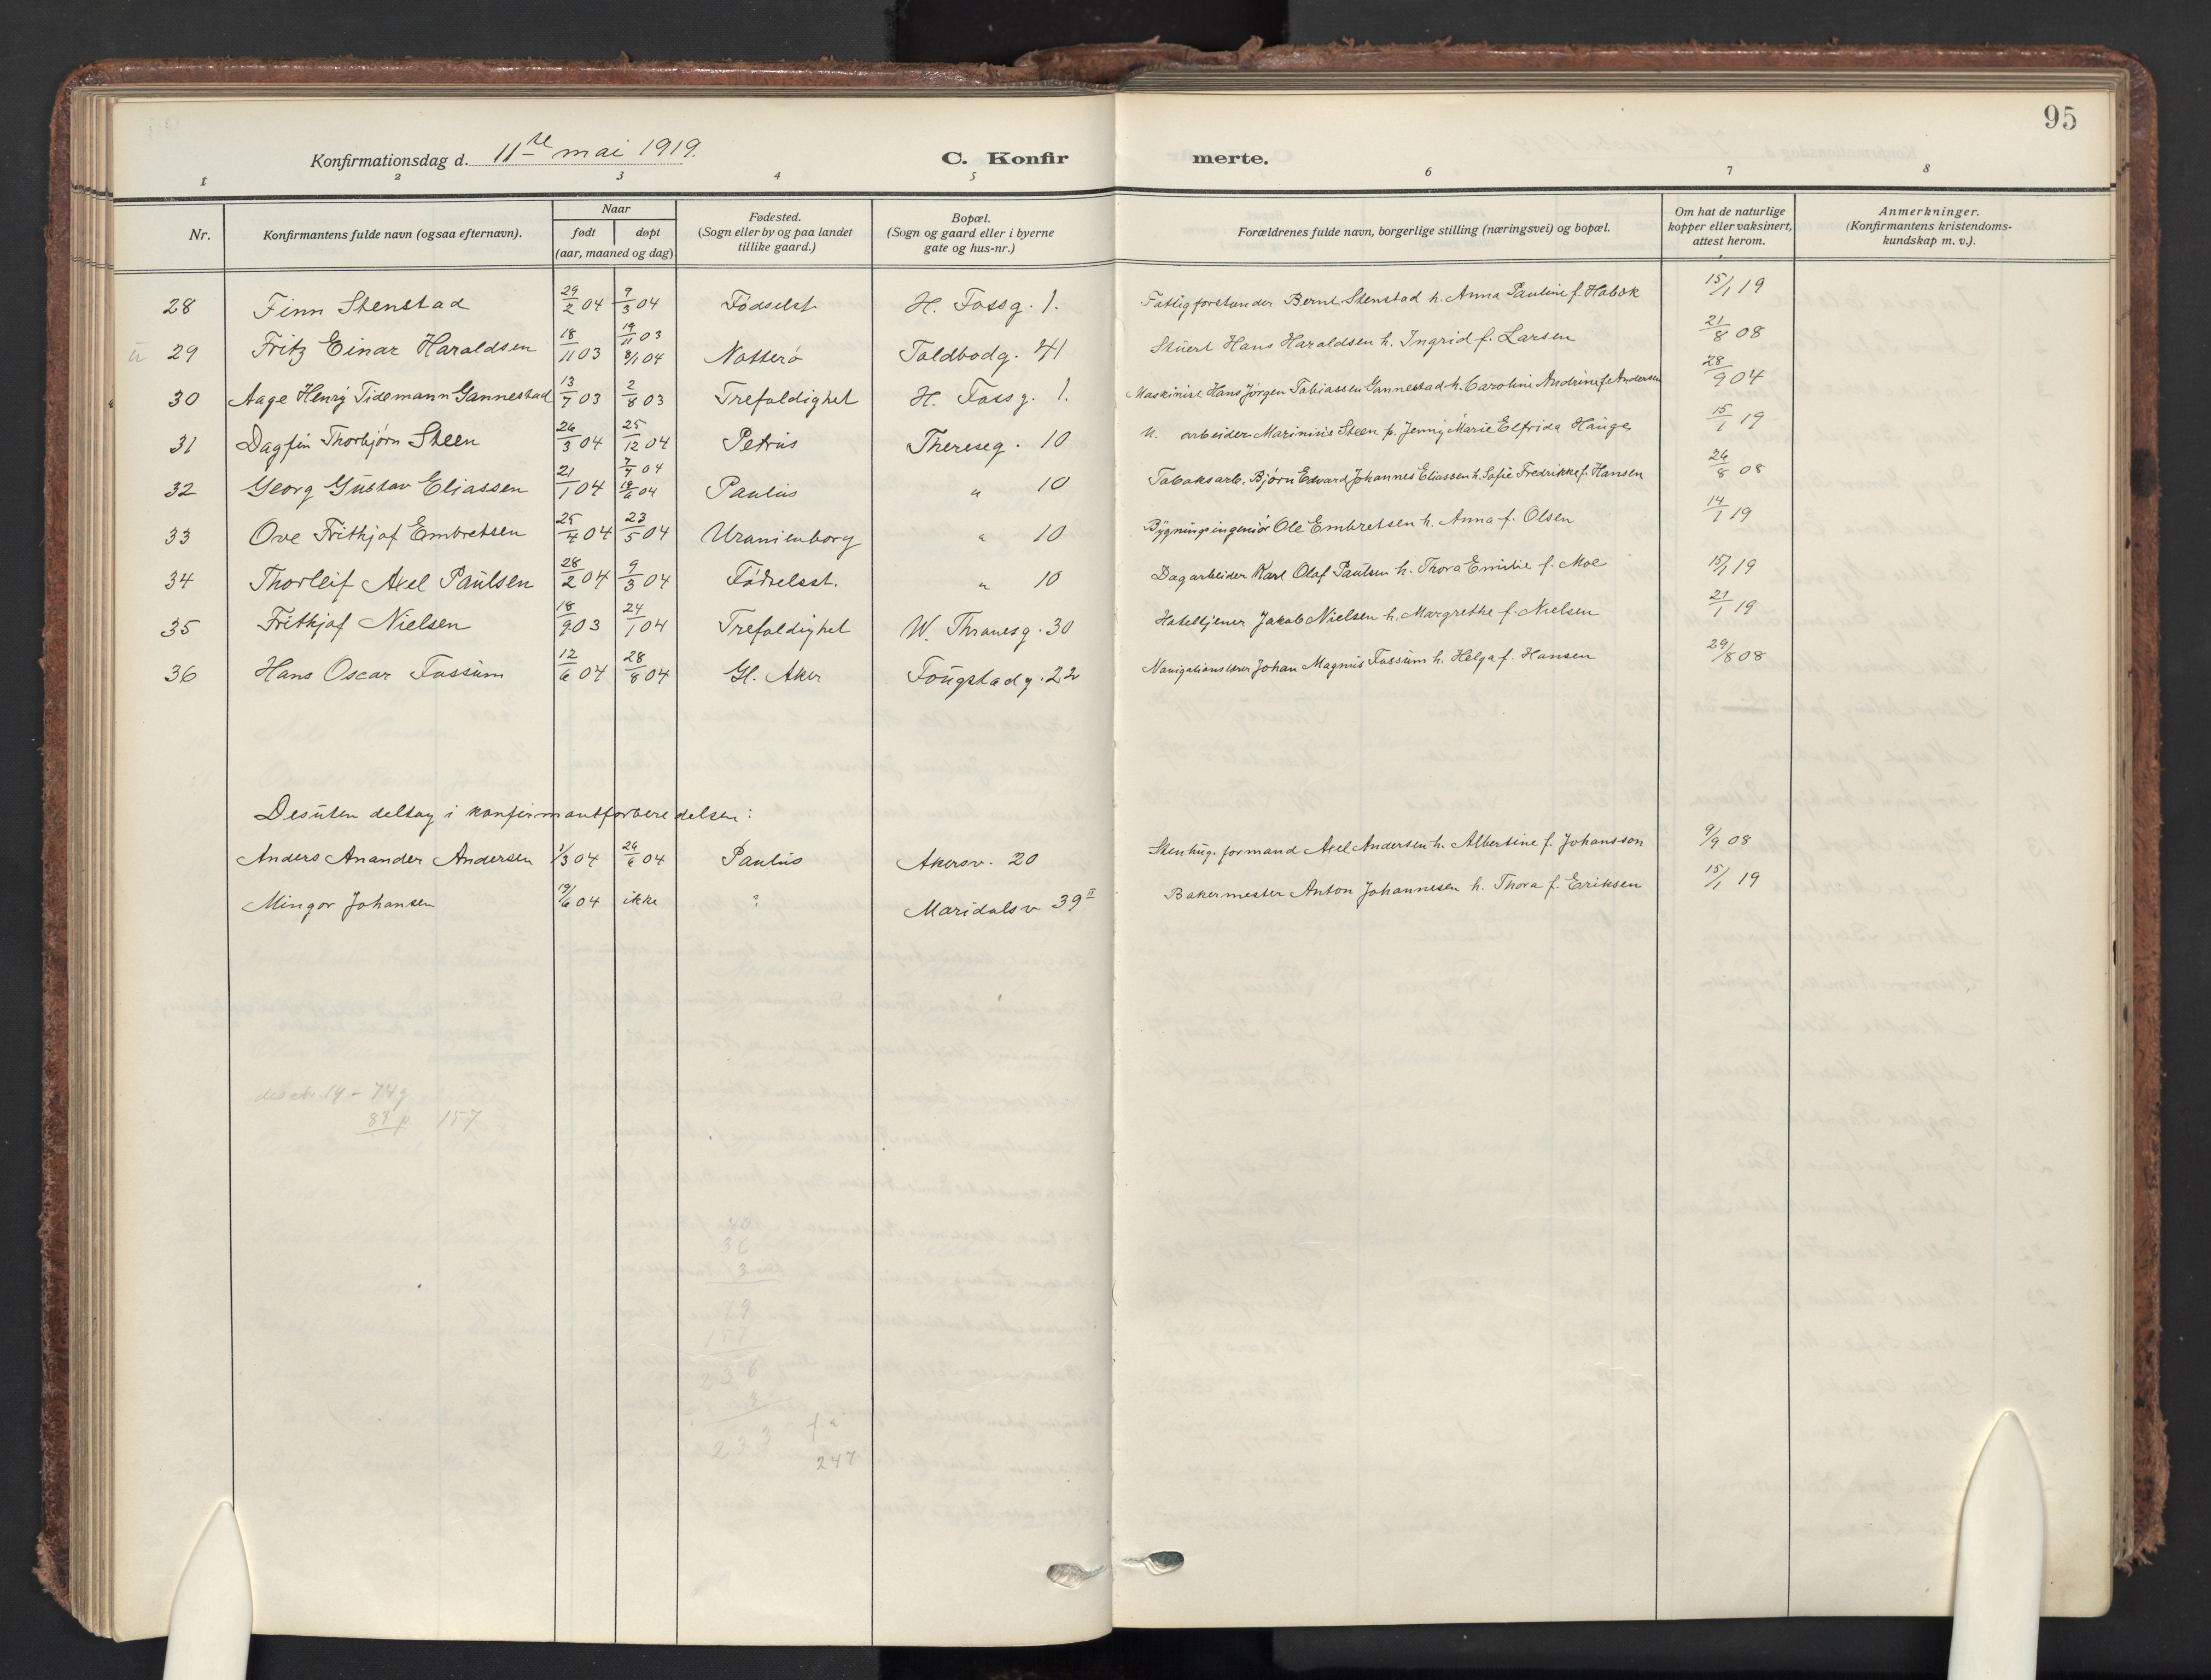 95
Konfirmationsdag d. 11te mai 1919. C. Konfir merte.
1 2 3 4 5 6 7 8
Nr. Konfirmantens fulde navn (ogsaa efternavn). Naar født døpt (aar, maaned og dag) Fødested. (Sogn eller by og paa landet tillike gaard.) Bopæl. (Sogn og gaard eller i byerne gate og hus-nr.) Forældrenes fulde navn, borgerlige stilling (næringsvei) og bopæl. Om hat de naturlige kopper eller vaksinert, attest herom. Anmerkninger. (Konfirmantens kristendoms-kundskap m. v.).
28 Finn Stenstad 29/2 04 9/3 04 Fødselst H. Fossg. 1. Fattigforstander Bernt Stenstad h. Anna Pauline f. Habæk 15/1 19
29 Fritz Einar Haraldsen 18/11 03 19/11 03 8/1 04 Nøtterø Toldbodg. 41 Stuert Hans Haraldsen h. Ingrid f. Larsen 21/8 08
30 Aage Henry Tidemann Gannestad 13/7 03 2/8 03 Trefoldighet H. Fossg. 1. Maskinist Hans Jørgen Tobiassen Gannestad h. Caroline Andrine f. Andersen 28/9 04
31 Dagfin Thorbjørn Steen 26/3 04 25/12 04 Petrus Thereseg. 10 u. arbeider Marinius Steen p. Jenny Marie Elfrida Hauge 15/1 19
32 Georg Gustav Eliassen 21/1 04 7/7 04 19/6 04 Paulus " 10 Tobaksarb. Bjørn Edvard Johannes Eliassen h. Sofie Fredrikke f. Hansen 26/8 08
33 Ove Frithjof Embretsen 25/4 04 23/5 04 Uranienborg " 10 Bygningsingeniør Ole Embretsen h. Anna f. Olsen 14/1 19
34 Thorleif Axel Paulsen 28/2 04 9/3 04 Fødselsst. " 10 Dagarbeider Karl Olaf Paulsen h. Thora Emilie f. Moe 15/1 19
35 Frithjof Nielsen 18/9 03 24/1 04 Trefoldighet W. Thranesg. 30 Hoteltjener Jakob Nielsen h. Margrethe f. Nielsen 21/1 19
36 Hans Oscar Fossum 12/6 04 28/8 04 Gl. Aker Fougstadg. 22 Navigationslærer Johan Magnus Fossum h. Helga f. Hansen 29/8 08
Desuten deltog i konfirmantforberedelsen:
Anders Anander Andersen 1/3 04 26/6 04 Paulus Akersv. 20 Stenhug. formand Axel Andersen h. Albertine f. Johansson 9/9 08
Mingor Johansen 19/6 04 ikke ? Maridalsv 39 II Bakermester Anton Johannesen h. Thora f. Eriksen 15/1 19
74 g
83 p 157
40
36
3
79
157
236
3
233
247